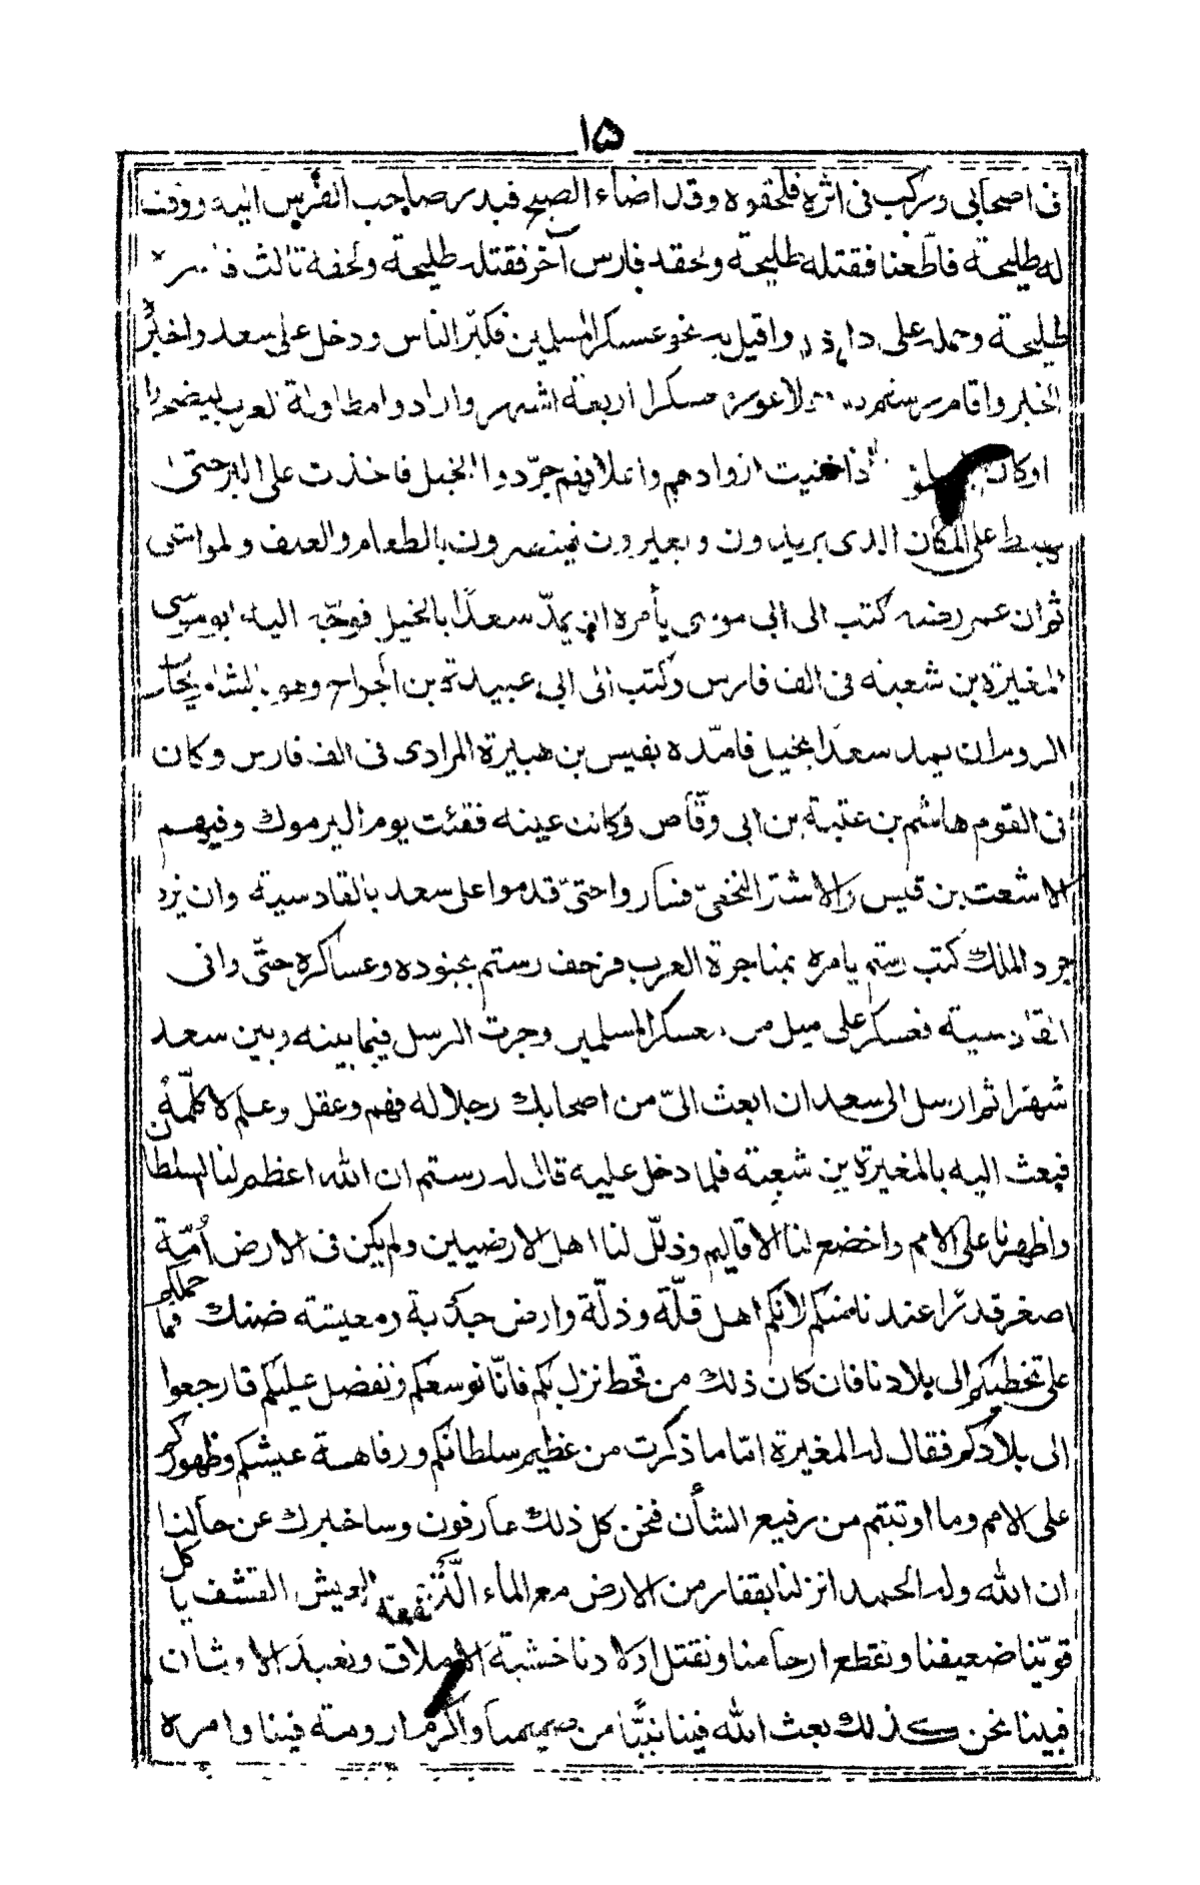 ١٥
فى اصحابى وركب فى اثره فلحقوه وقد اضاء الصبح فبدر صاحب الفرس اليه ووقف
له طليحة فاطعنا فقتله طليحة ولحقه فارس آخر فقتله طليحة ولحقه ثالث
طليحة وحمله على واقبل به نحو عسكر المسلمين فكبّر الناس ودخل على سعد واخبره
الخبر واقام رستم معسكرا اربعة اشهر وارادوا مطاولة العرب ليضجروا
وكان اذا فنيت ازوادهم واعلافهم جرّدوا الخيل فاخذت على البر حتى
يهبط على المكان الذى يريدون ويغيرون فينصرون بالطعام والعلف والمواشى
ثم ان عمر رضه كتب الى ابى موسى يأمره ان يمدّ سعدًا بالخيل فوجّه اليه ابو موسى
المغيرة بن شعبة فى الف فارس وكتب الى ابى عبيدة بن الجراح وهو بالشام يحارب
الروم ان يمد سعدًا بخيل فامدّه بقيس بن هبيرة المرادى فى الف فارس وكان
فى القوم هاشم بن عتبة بن ابى وقّاص وكانت عينه فقئت يوم اليرموك وفيهم
الاشعث بن قيس والاشتر النخعىّ فساروا حتىّ قدموا على سعد بالقادسية وان يزد
جرد الملك كتب رستم يامره بمناجرة العرب فزحف رستم بجنوده وعساكره حتّى وافى
القادسية فعسكر على ميل من معسكر المسلمين وجرت الرسل فيما بينه وبين سعد
شهرًا ثم ارسل الى سعد ان ابعث الىّ من اصحابك رجلا له فهم وعقل وعلم لاكلّمه
فبعث اليه بالمغيرة بن شعبة فلما دخل عليه قال له رستم ان الله اعظم لنا السلطان
واظهرنا على الامم واخضع لنا الاقاليم وذلّل لنا اهل الارضيين ولم يكن فى الارض أمّة
اصغر قدرًا عندنا منكم لانكم اهل قلّة وذلّة وارض جدبة ومعيشة ضنك فما حملكم
على تخطيكم الى بلادنا فان كان ذلك من قحط نزل بكم فانّا نوسعكم ونفضل عليكم فارجعوا
الى بلادكم فقال له المغيرة امّا ما ذكرت من عظيم سلطانكم ورفاهية عيشكم وظهوركم
على الامم وما اوتيتم من رفيع الشأن فنحن كل ذلك عارفون وساخبرك عن حالنا
ان الله وله الحمد انزلنا بقفار من الارض مع الماء النّزر والعيش القشف ياكل
قويّنا ضعيفنا ونقطع ارحامنا ونقتل اولادنا خشية الاملاق ونعبد الاوثان
فبينا نحن كذلك بعث الله فينا نبيًّا من صميمنا واكرم ارومة فينا وامره